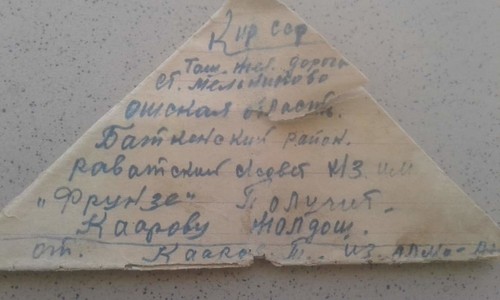 Кир ССР
Таш. жел. дорога
ст. Мельниково
ошская область.
Баткенский район.
раватский с/совет к/з им
„Фрунзе" Получит.
Каарову Жолдош.
от. Кааров Т. из Алма-